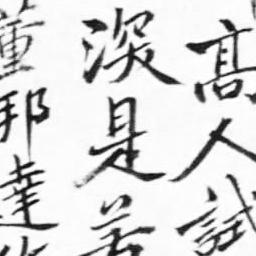 髙人試
深是若
董邦達